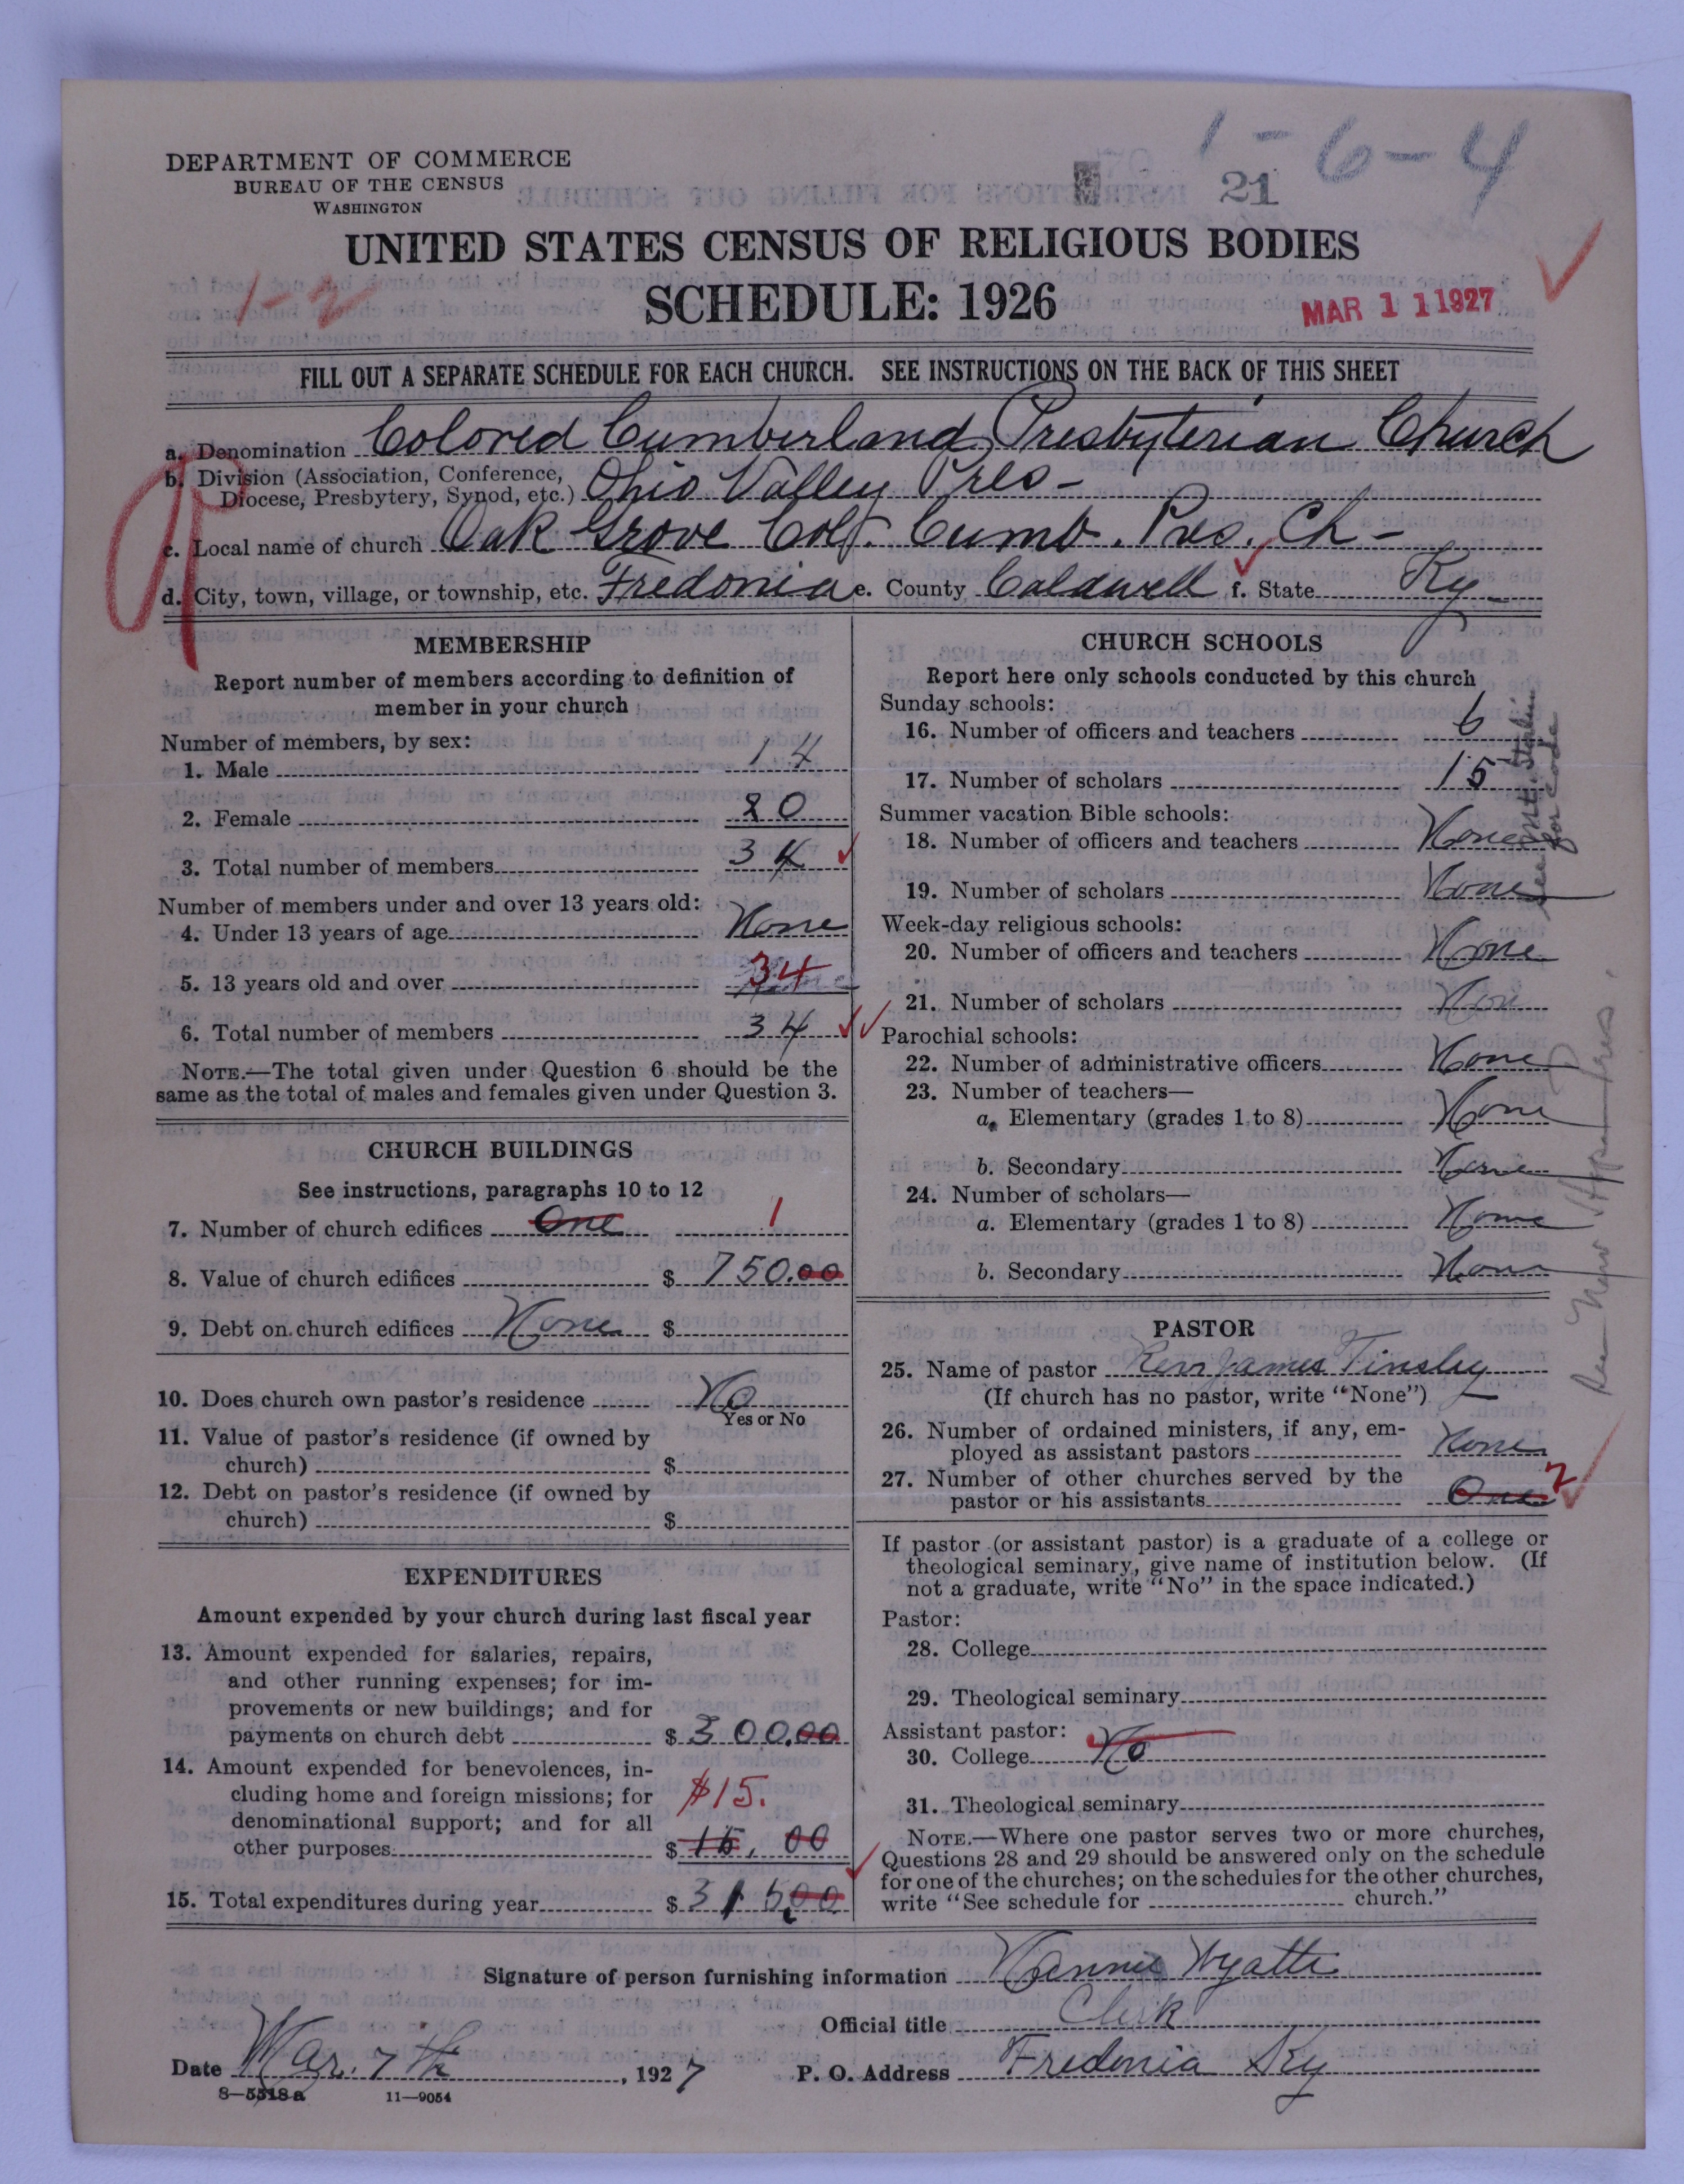 1-6-4
DEPARTMENT OF COMMERCE
BUREAU OF THE CENSUS
WASHINGTON
21
UNITED STATES CENSUS OF RELIGIOUS BODIES
1-2
SCHEDULE: 1926
MAR 11 1927
FILL OUT A SEPARATE SCHEDULE FOR EACH CHURCH. SEE INSTRUCTIONS ON THE BACK OF THIS SHEET
a. Denomination Colored Cumberland Presbyterian Church
b. Division (Association, Conference,
Diocese, Presbytery, Synod, etc.) Ohio Valley Pres-
c. Local name of church Oak Grove Col. Cumb. Pres. Ch-
d. City, town, village, or township, etc. Fredonia e. County Caldwell f. State Ky-
MEMBERSHIP
Report number of members according to definition of
member in your church
Number of members, by sex:
1. Male 14
2. Female 20
3. Total number of members 34
Number of members under and over 13 years old:
4. Under 13 years of age None
5. 13 years old and over 34
6. Total number of members 34
NOTE.—The total given under Question 6 should be the
same as the total of males and females given under Question 3.
CHURCH BUILDINGS
See instructions, paragraphs 10 to 12
7. Number of church edifices One 1
8. Value of church edifices $ 750.00
9. Debt on church edifices None $
10. Does church own pastor's residence No
Yes or No
11. Value of pastor's residence (if owned by
church) $
12. Debt on pastor's residence (if owned by
church) $
EXPENDITURES
Amount expended by your church during last fiscal year
13. Amount expended for salaries, repairs,
and other running expenses; for im-
provements or new buildings; and for
payments on church debt $ 300.00
14. Amount expended for benevolences, in-
cluding home and foreign missions; for
denominational support; and for all
other purposes $ 15.00
$15.
15. Total expenditures during year $ 315.00
CHURCH SCHOOLS
Report here only schools conducted by this church
Sunday schools:
16. Number of officers and teachers 6
17. Number of scholars 15
Summer vacation Bible schools:
18. Number of officers and teachers None
19. Number of scholars None
Week-day religious schools:
20. Number of officers and teachers None
21. Number of scholars Non
Parochial schools:
22. Number of administrative officers None
23. Number of teachers—
a. Elementary (grades 1 to 8) None
b. Secondary None
24. Number of scholars—
a. Elementary (grades 1 to 8) None
b. Secondary None
for code
PASTOR
25. Name of pastor Rev James Tinsley
(If church has no pastor, write "None")
26. Number of ordained ministers, if any, em-
ployed as assistant pastors None
27. Number of other churches served by the
pastor or his assistants One 2
If pastor (or assistant pastor) is a graduate of a college or
theological seminary, give name of institution below. (If
not a graduate, write "No" in the space indicated.)
Pastor:
28. College
29. Theological seminary
Assistant pastor:
30. College No
31. Theological seminary
NOTE.—Where one pastor serves two or more churches,
Questions 28 and 29 should be answered only on the schedule
for one of the churches; on the schedules for the other churches,
write "See schedule for church."
Signature of person furnishing information Nannie Wyatt
Official title Clerk
Date Mar. 7th, 1927 P. O. Address Fredonia Ky
8—5518 a 11—9054